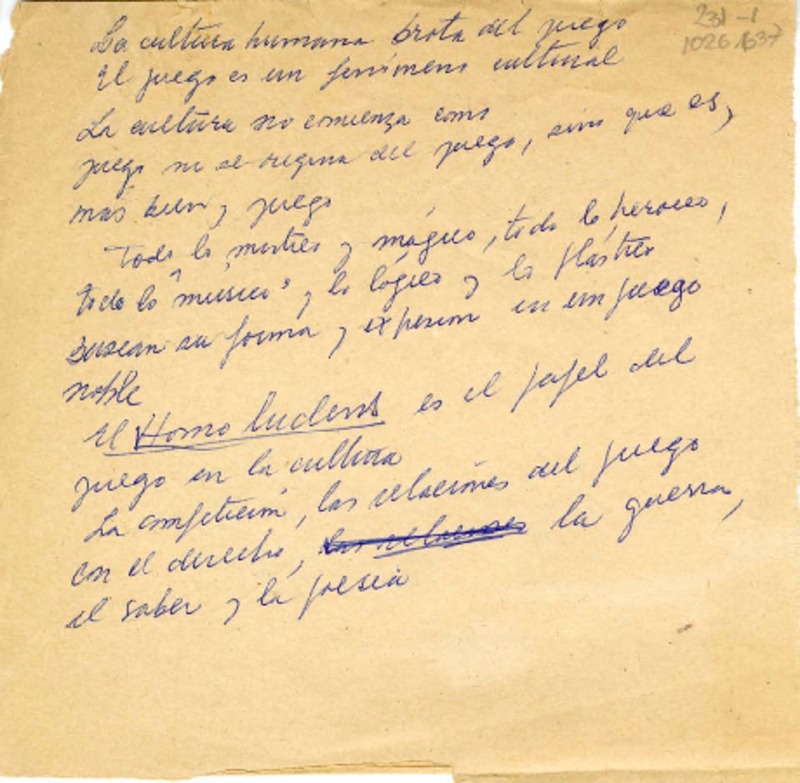 231-1
1026637
La cultura humana brota del juego
El juego es un fenómeno cultural
La cultura no comienza como
juego ni se origina del juego, sino que es,
más bien, juego
Todo lo místico y mágico, todo lo heroico,
todo lo "músico", lo lógico y lo plástico
buscan su forma y expresión en un juego
noble
El Homo ludens es el papel del
juego en la cultura
La competición, las relaciones del juego
con el derecho, las relaciones la guerra,
el saber y la poesía